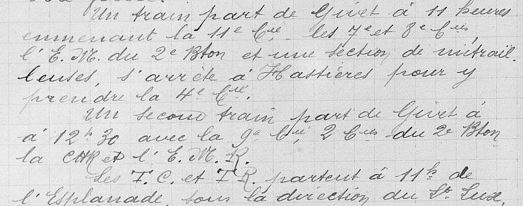 Un train part de Givet à 11 heures
emmenant la 11e Cie les 7e et 8e Cies
l'E. M. du 2e Bton et une section de mitrail.
leuses, s'arrête à Hastières pour y
prendre la 4e Cie.
Un second train part de Givet à
à 12h30 avec la 9e Cie 2 Cies du 2e Bton
la CHR et l'E. M. R.
Les T. C. et T R partent à 11h de
l'Esplanade, sous la direction du Lt